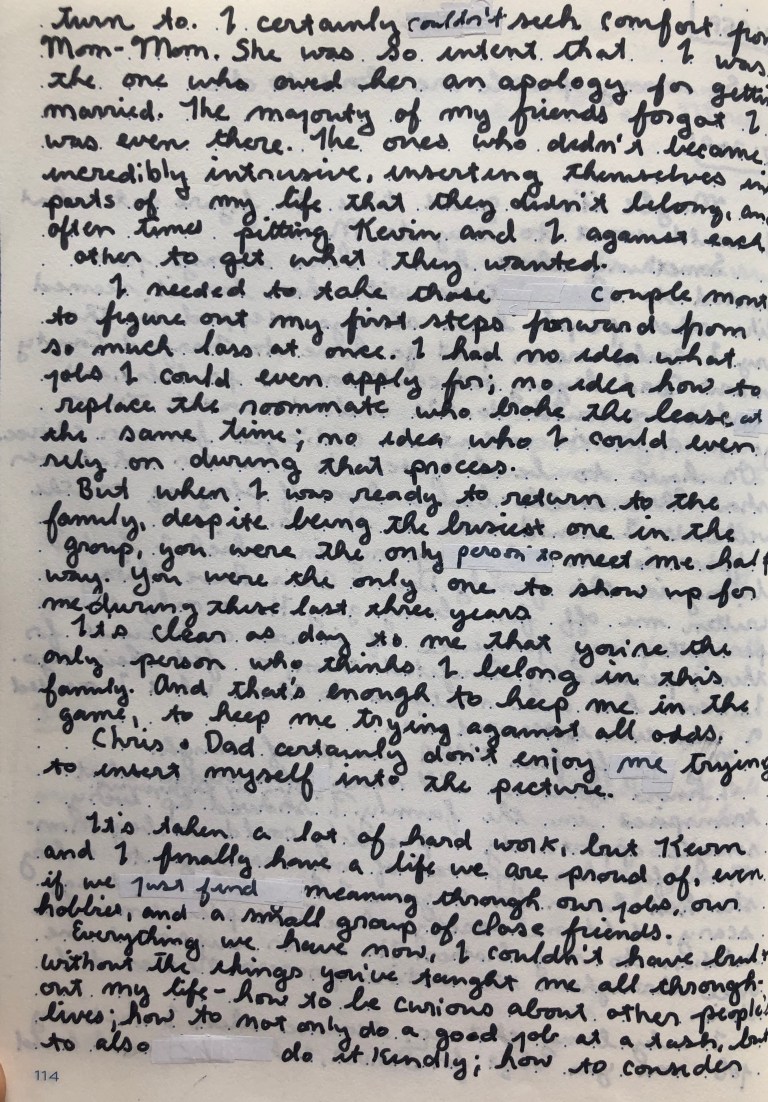 turn to. I certainly couldn't seek comfort from
Mom-Mom. She was so intent that I was
the one who owed her an apology for getti
married. The majority of my friends forgot I
was even there. The ones who didn't became
incredibly intrusive, inserting themselves in
parts of my life that they didn't belong, an
often times pitting Kevin and I against each
other to get what they wanted.
I needed to take those couple mont
to figure out my first steps forward from
so much loss at once. I had no idea what
jobs I could even apply for; no idea how to
replace the roommate who broke the lease at
the same time; no idea who I could even
rely on during that process.
But when I was ready to return to the
family, despite being the busiest one in the
group, you were the only person to meet me half
way. You were the only one to show up for
me during these last three years
It's clear as day to me that you're the
only person who thinks I belong in this
family. And that's enough to keep me in the
game, to keep me trying against all odds.
Chris & Dad certainly don't enjoy me trying
to insert myself into the picture.
It's taken a lot of hard work, but Kevin
and I finally have a life we are proud of, even
if we just find meaning through our jobs, our
hobbies, and a small group of close friends.
Everything we have now, I couldn't have built
without the things you've taught me all through-
out my life - how to be curious about other people's
lives; how to not only do a good job at a task, but
to also do it kindly; how to consider
114